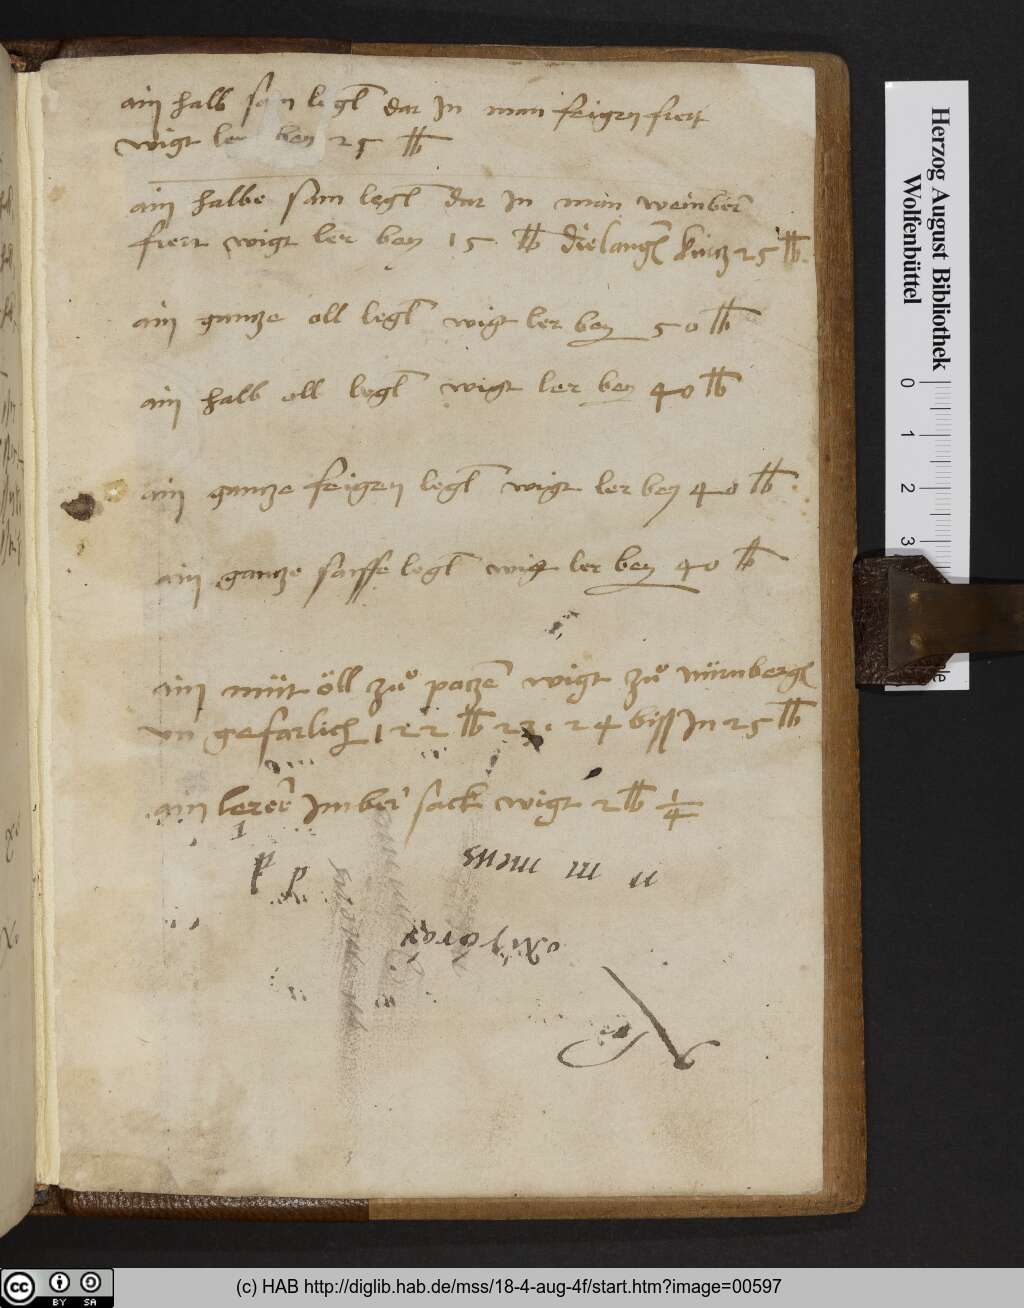 ain halb sam legl dar In man feigen fiert
wigt ler ben 25 ℔
ain halbe sam legl dar In man weinber
fiert wigt ler ben 15 ℔ die lang 25 ℔
ain gancze oll legl wigt ler ben 50 ℔
ain halb oll legl wigt ler ben 40 ℔
ain gancze feigen legl wigt ler ben 40 ℔
ain gancze saiffe legl wigt ler ben 40 ℔
ain müt öll zuͦ poczen wigt zuͦ nürnberg
vn gefarlich 122 ℔ 23 · 24 biss In 25 ℔
ain lerer Imber sack wigt 2 ℔ 1/4
Herzog August Bibliothek
Wolfenbüttel
0
1
2
3
(c) HAB http://diglib.hab.de/mss/18-4-aug-4f/start.htm?image=00597
cc BY SA